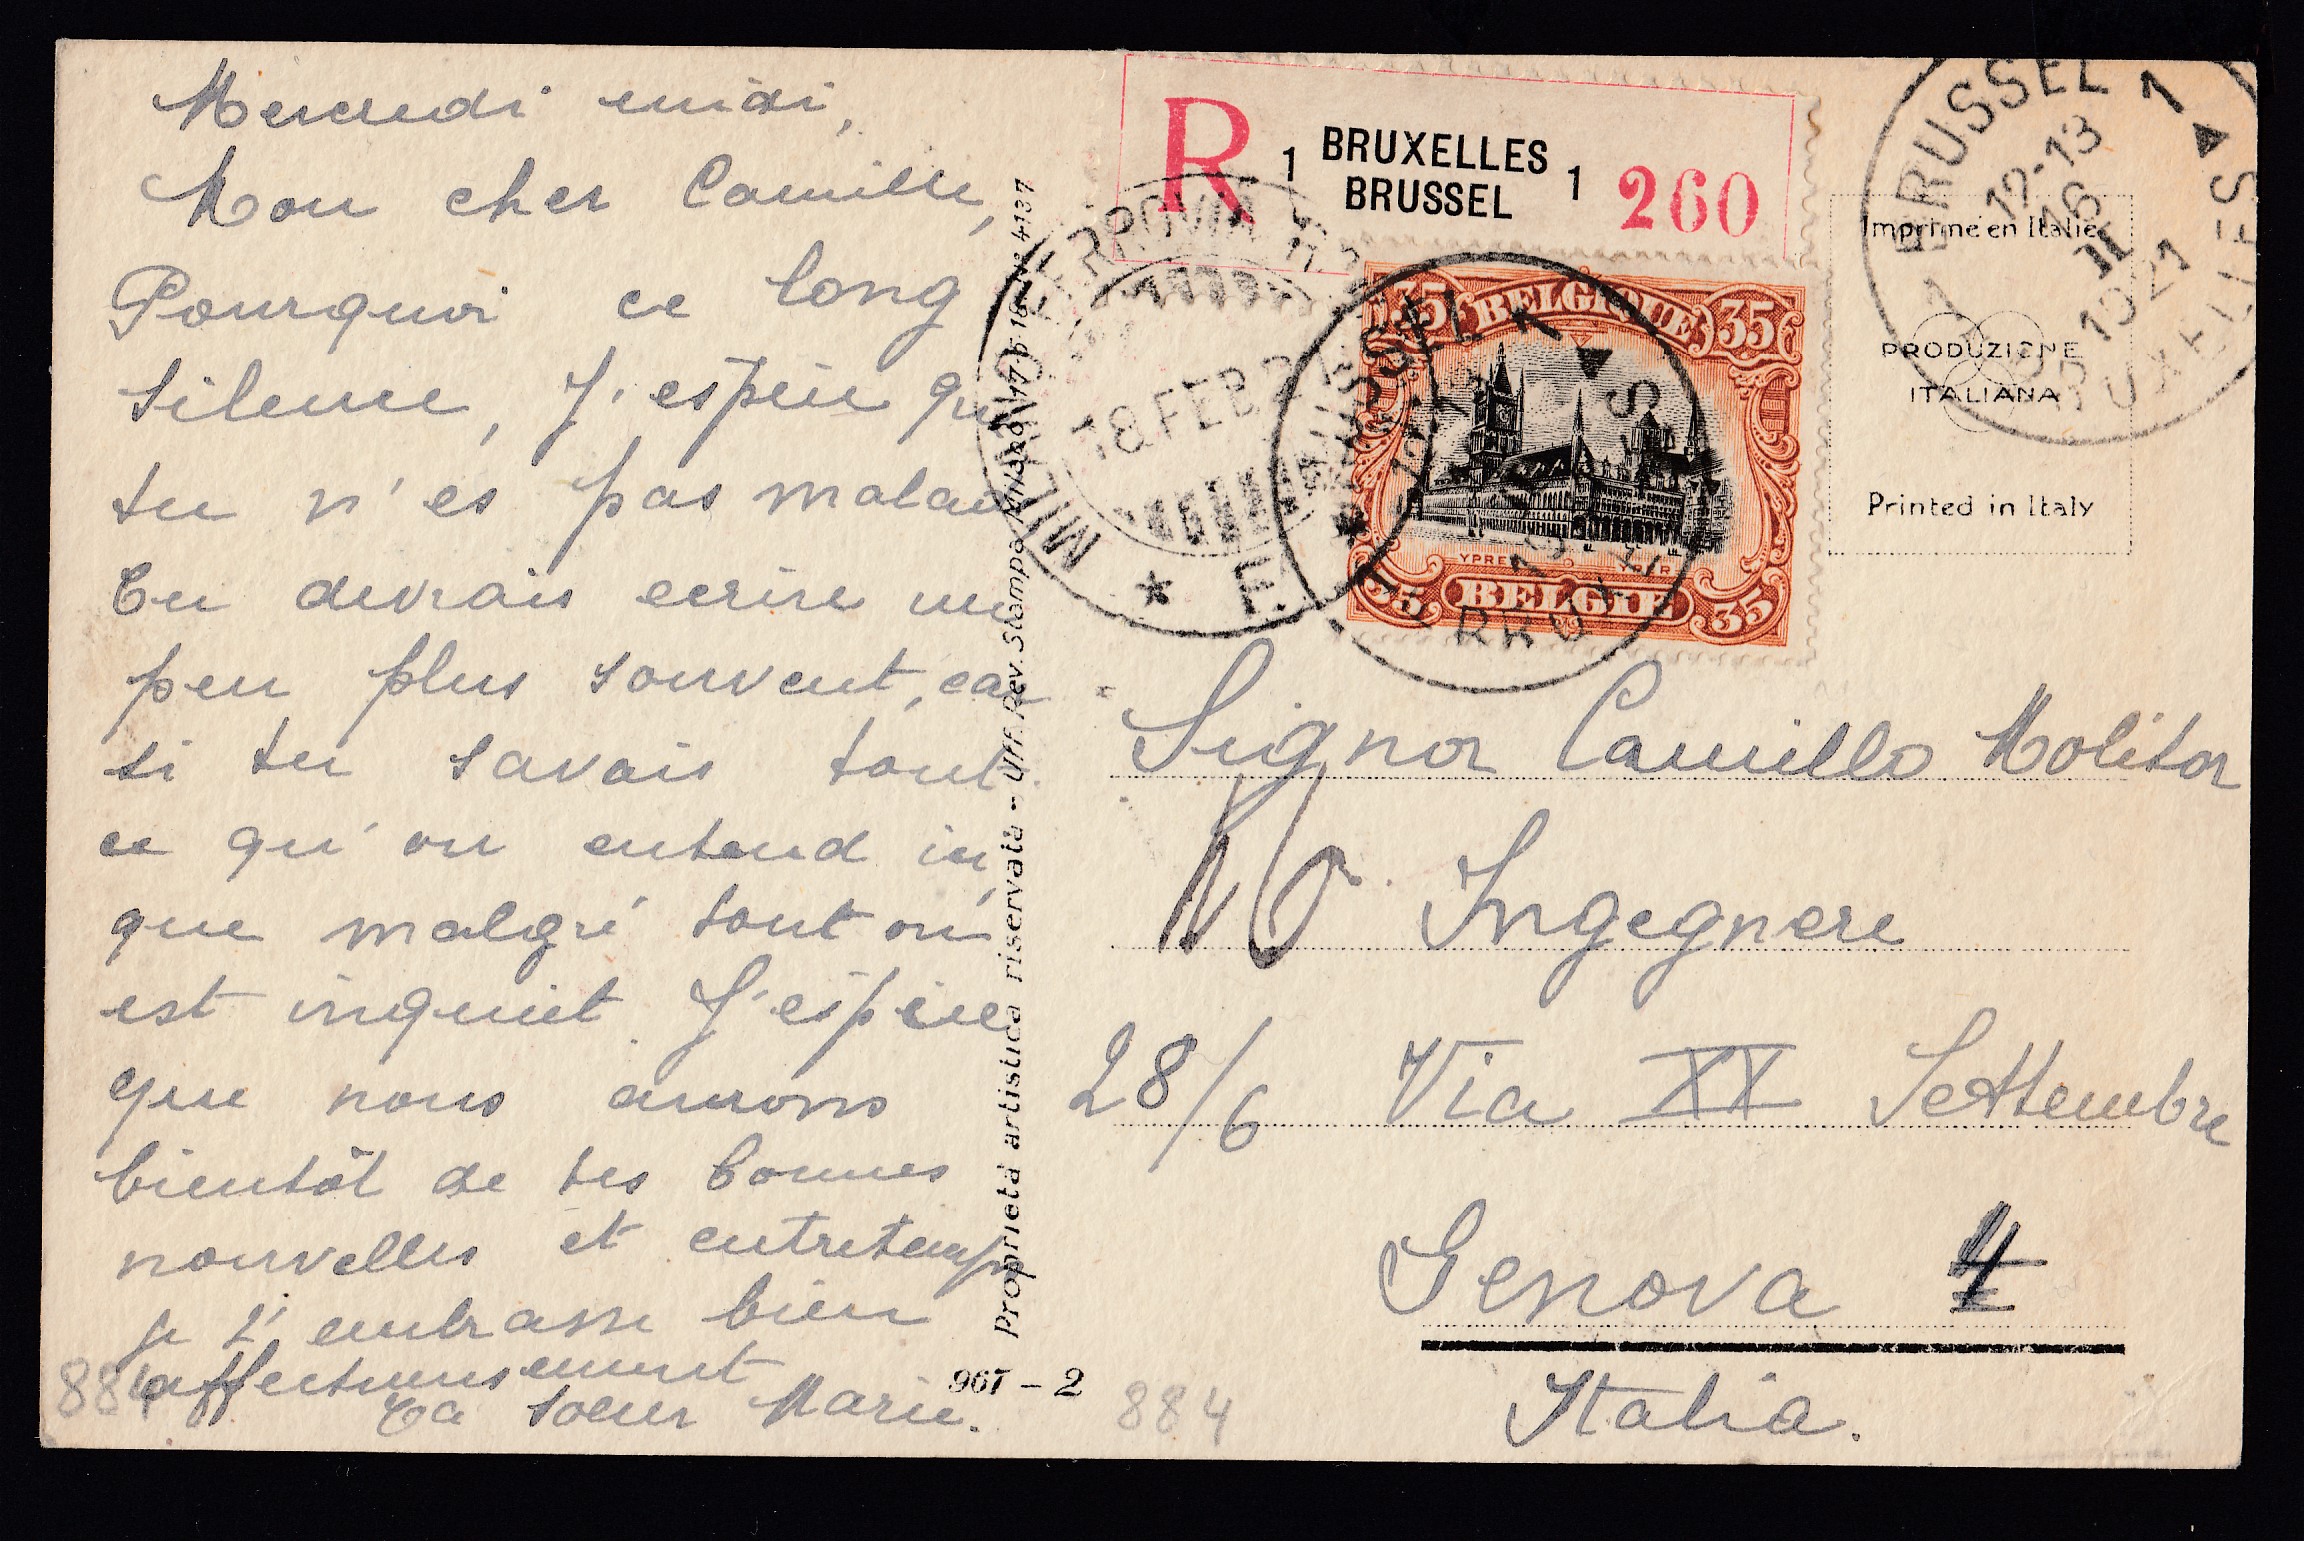 Mercredi midi,
Mon cher Camille,
Pourquoi ce long
silence, J'espère que
tu n'es pas malade
Tu devrais ecrire un
peu plus souvent, car
si tu savais tout
ce qu'on entend ici,
que malgré tout on
est inquiet J'espère
que nous aurons
bientôt de tes bonnes
nouvelles et entretemps
je t'embrasse bien
affectueusement
Ta soeur Marie.
884
Proprietà artistica riservata - Uff. Rev. Stampa Milano
4137
967 - 2
884
R 1 BRUXELLES BRUSSEL 1 260
MILANO FERROVIA
18 FEB 2
35 BELGIQUE 35
YPRES YPER
35 BELGIË 35
BRUSSEL 1
12-13
16
II
1921
BRUXELLES
Imprimé en Italie
PRODUZIONE
ITALIANA
Printed in Italy
Signor Camillo Molitor
Ingegnere
28/6 Via XX Settembre
Genova 4
Italia.